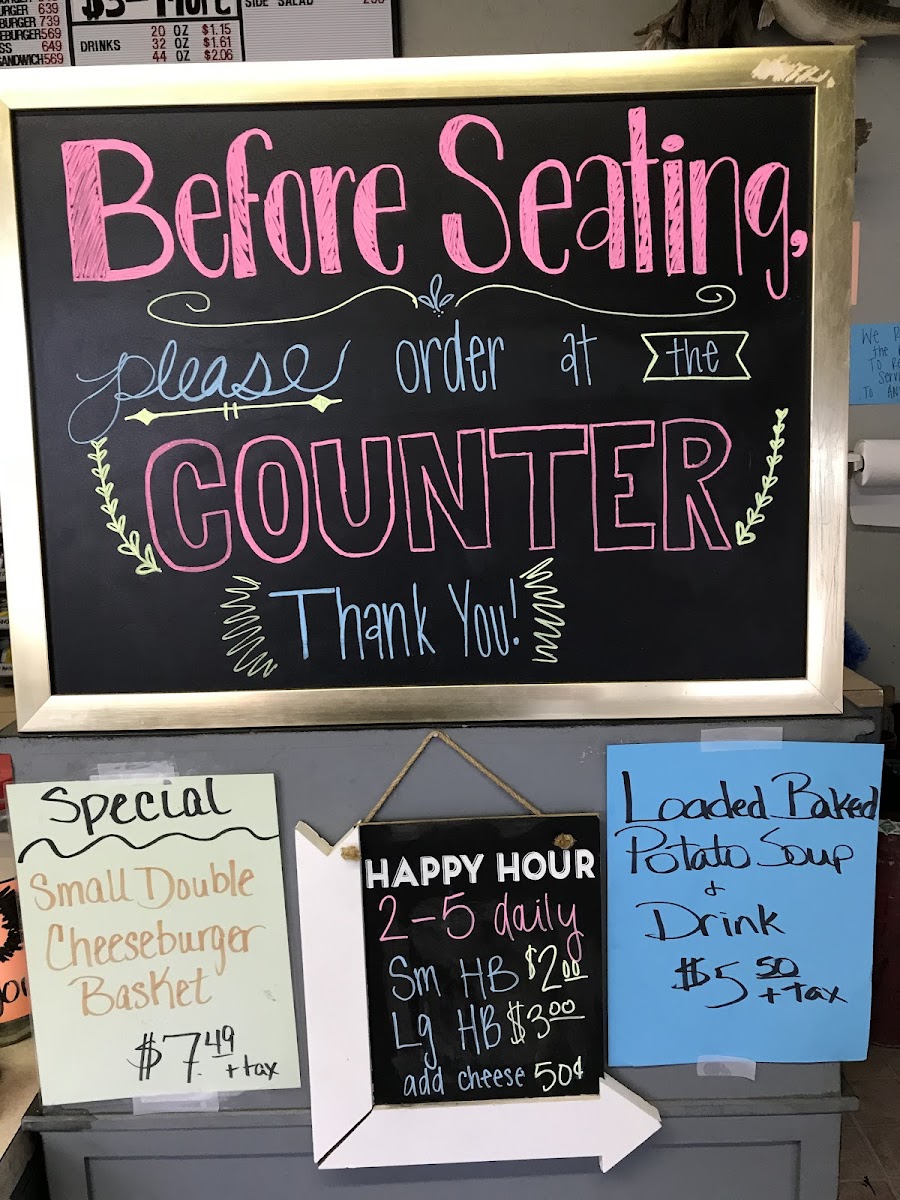 URGER 639
BURGER 739
EBURGER 569
SS 649
SANDWICH 569
DRINKS
20 OZ $1.15
32 OZ $1.61
44 OZ $2.06
SIDE SALAD
Before Seating,
please order at the
COUNTER
Thank You!
We
the
TO
Serv
TO AN
Special
Small Double
Cheeseburger
Basket
$7.49
+ tax
HAPPY HOUR
2-5 daily
Sm HB $2.00
Lg HB $3.00
add cheese 50¢
Loaded Baked
Potato Soup
&
Drink
$5.50
+ tax